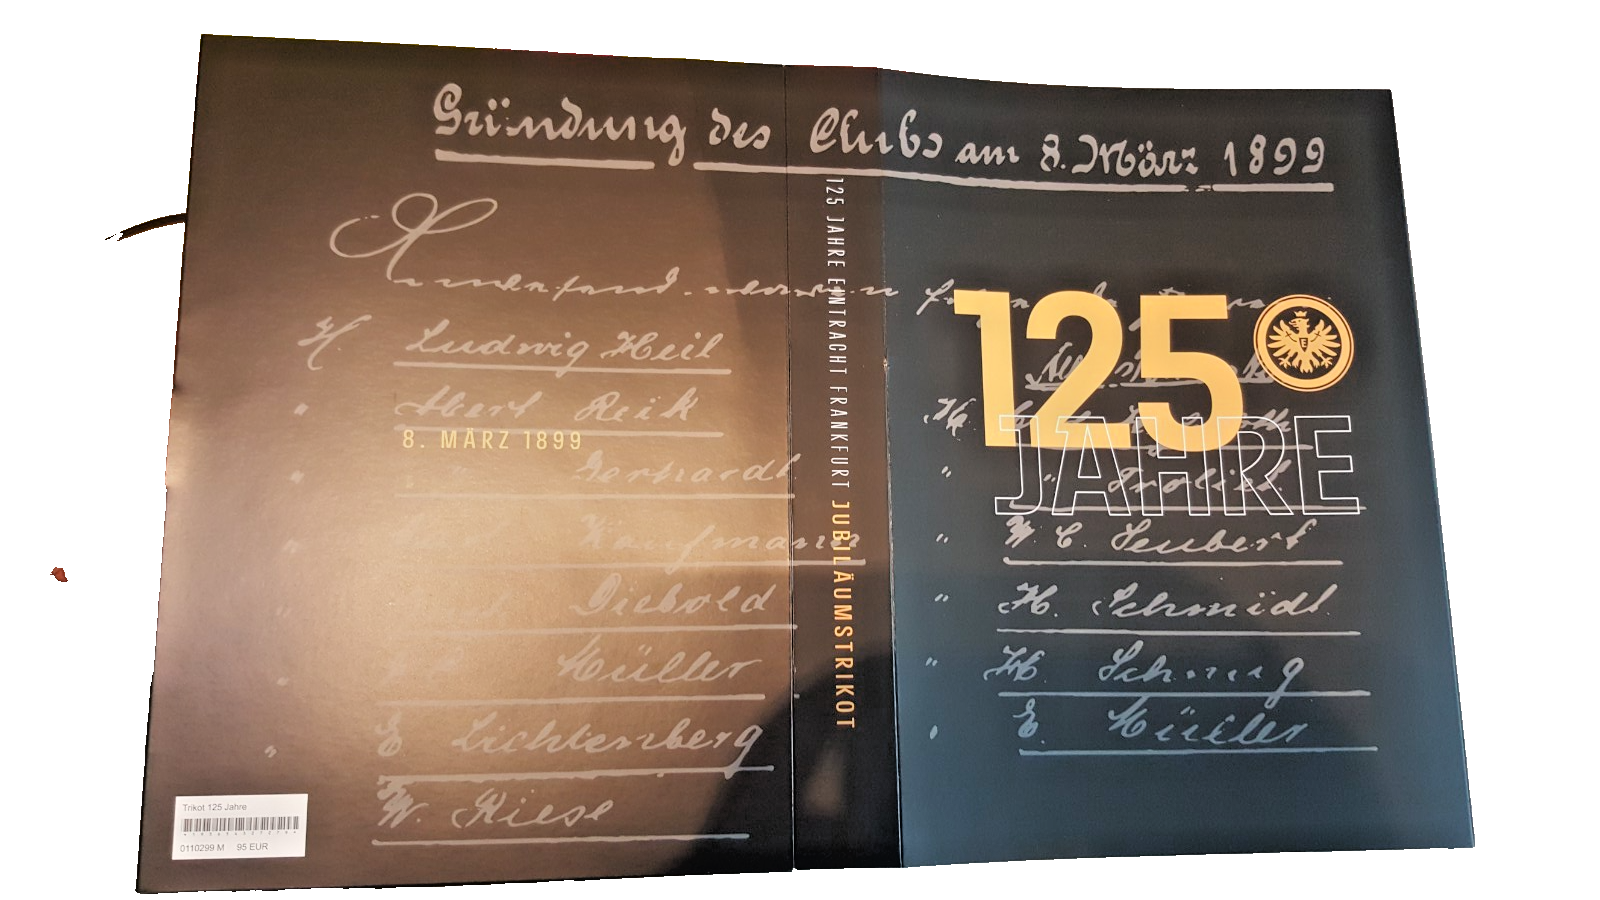 Gründung des Clubs am 8. März 1899
Anwesend waren
H. Ludwig Heil
" Albert Reik
8. MÄRZ 1899
" Gerhardt
" Kaufmann
" Diebold
" Müller
" E. Lichtenberg
W. Riese
Trikot 125 Jahre
0110299 M 95 EUR
125 JAHRE EINTRACHT FRANKFURT JUBILÄUMSTRIKOT
125
JAHRE
H.
"
" W C. Seubert
" H. Schmidt
" H.
" E. Müller